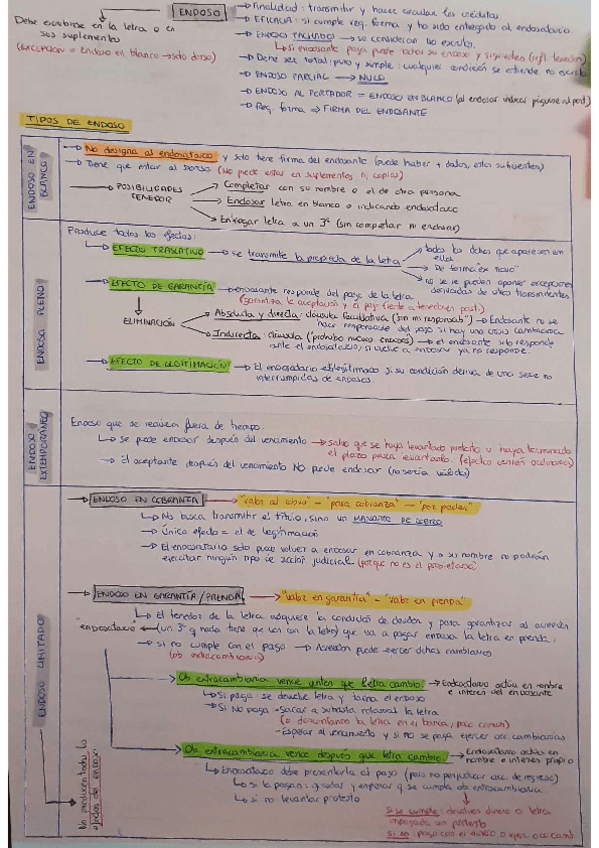 ENDOSO
→ Finalidad: transmitir y hacer circular los créditos
→ EFICACIA: si cumple req. forma y ha sido entregado al endosatario.
→ ENDOSO TACHADO → se consideran no escrito.
↳ si endosante paga puede tachar su endoso y siguientes
→ Debe ser total: pura y simple: cualquier condición se entiende no escrita
→ ENDOSO PARCIAL → NULO
→ ENDOSO AL PORTADOR = ENDOSO EN BLANCO
→ Req. forma → FIRMA DEL ENDOSANTE
Debe escribirse en la letra o en
sus suplementos
(EXCEPCIÓN = endoso en blanco → solo dorso)
TIPOS DE ENDOSO
ENDOSO EN BLANCO
→ No designa al endosatario y solo tiene firma del endosante (puede haber + datos, estos suficientes)
→ Tiene que estar al dorso (No puede estar en suplementos ni copias)
→ POSIBILIDADES TENEDOR
Completar con su nombre o el de otra persona
Endosar letra en blanco o indicando endosatario
Entregar letra a un 3º (sin completar ni endosar)
ENDOSO PLENO
Produce todos los efectos:
↳ EFECTO TRASLATIVO → se transmite la propiedad de la letra
todos los dchos que aparecen en ella
De forma "ex novo"
no se le pueden oponer excepciones
derivadas de otros transmitentes
↳ EFECTO DE GARANTÍA → endosante responde del pago de la letra
(garantiza la aceptación y el pago frente a tenedores post.)
ELIMINACIÓN
Absoluta y directa: cláusula facultativa ("sin mi responsab") → Endosante no se
hace responsable del pago si hay una crisis cambiaria
Indirecta: cláusula ("prohibo nuevo endoso") → el endosante solo responde
ante el endosatario, si vuelve a endosar ya no responde.
↳ EFECTO DE LEGITIMACIÓN → El endosatario es legitimado si su condición deriva de una serie no
interrumpida de endosos.
ENDOSO EXTEMPORÁNEO
Endoso que se realiza fuera de tiempo.
↳ Se puede endosar después del vencimiento → salvo que se haya levantado protesto o haya terminado
el plazo para levantarlo. (efectos cesión ordinaria)
→ El aceptante después del vencimiento NO puede endosar (no sería válido)
ENDOSO LIMITADO
No producen todos los
efectos del endoso
→ ENDOSO EN COBRANZA → "valor al cobro" - "para cobranza" - "por poder"
↳ No busca transmitir el título, sino un MANDATO DE COBRO
↳ Único efecto = el de legitimación
↳ El endosatario solo puede volver a endosar en cobranza y a su nombre no podrán
ejercitar ningún tipo de acción judicial (porque no es el propietario)
→ ENDOSO EN GARANTÍA / PRENDA → "valor en garantía" - "valor en prenda"
↳ El tenedor de la letra adquiere la condición de deudor y para garantizar al acreedor
"endosatario" ← (un 3º q nada tiene que ver con la letra) que va a pagar endosa la letra en prenda.
↳ si no cumple con el pago → Acreedor puede ejercer dchos cambiarios
(ob extracambiaria)
Ob extracambiaria vence antes que letra cambio → Endosatario actúa en nombre
e interés del endosante
↳ Si paga: se devuelve letra y tacha el endoso
↳ Si NO paga - sacar a subasta notarial la letra
(o descontando la letra en el banco, poco común)
- Esperar al vencimiento y si no se paga ejercer acc. cambiarias
Ob extracambiaria vence después que letra cambio → Endosatario actúa en
nombre e interés propio
↳ Endosatario debe presentarla al pago (para no perjudicar acc. de regreso)
↳ Si la pagan: guardar y esperar q se cumpla ob extracambiaria
↳ si no levantar protesto
Si se cumple: devolver dinero o letra
impagada con protesto
Si no: pago con el dinero o ejer. acc camb.